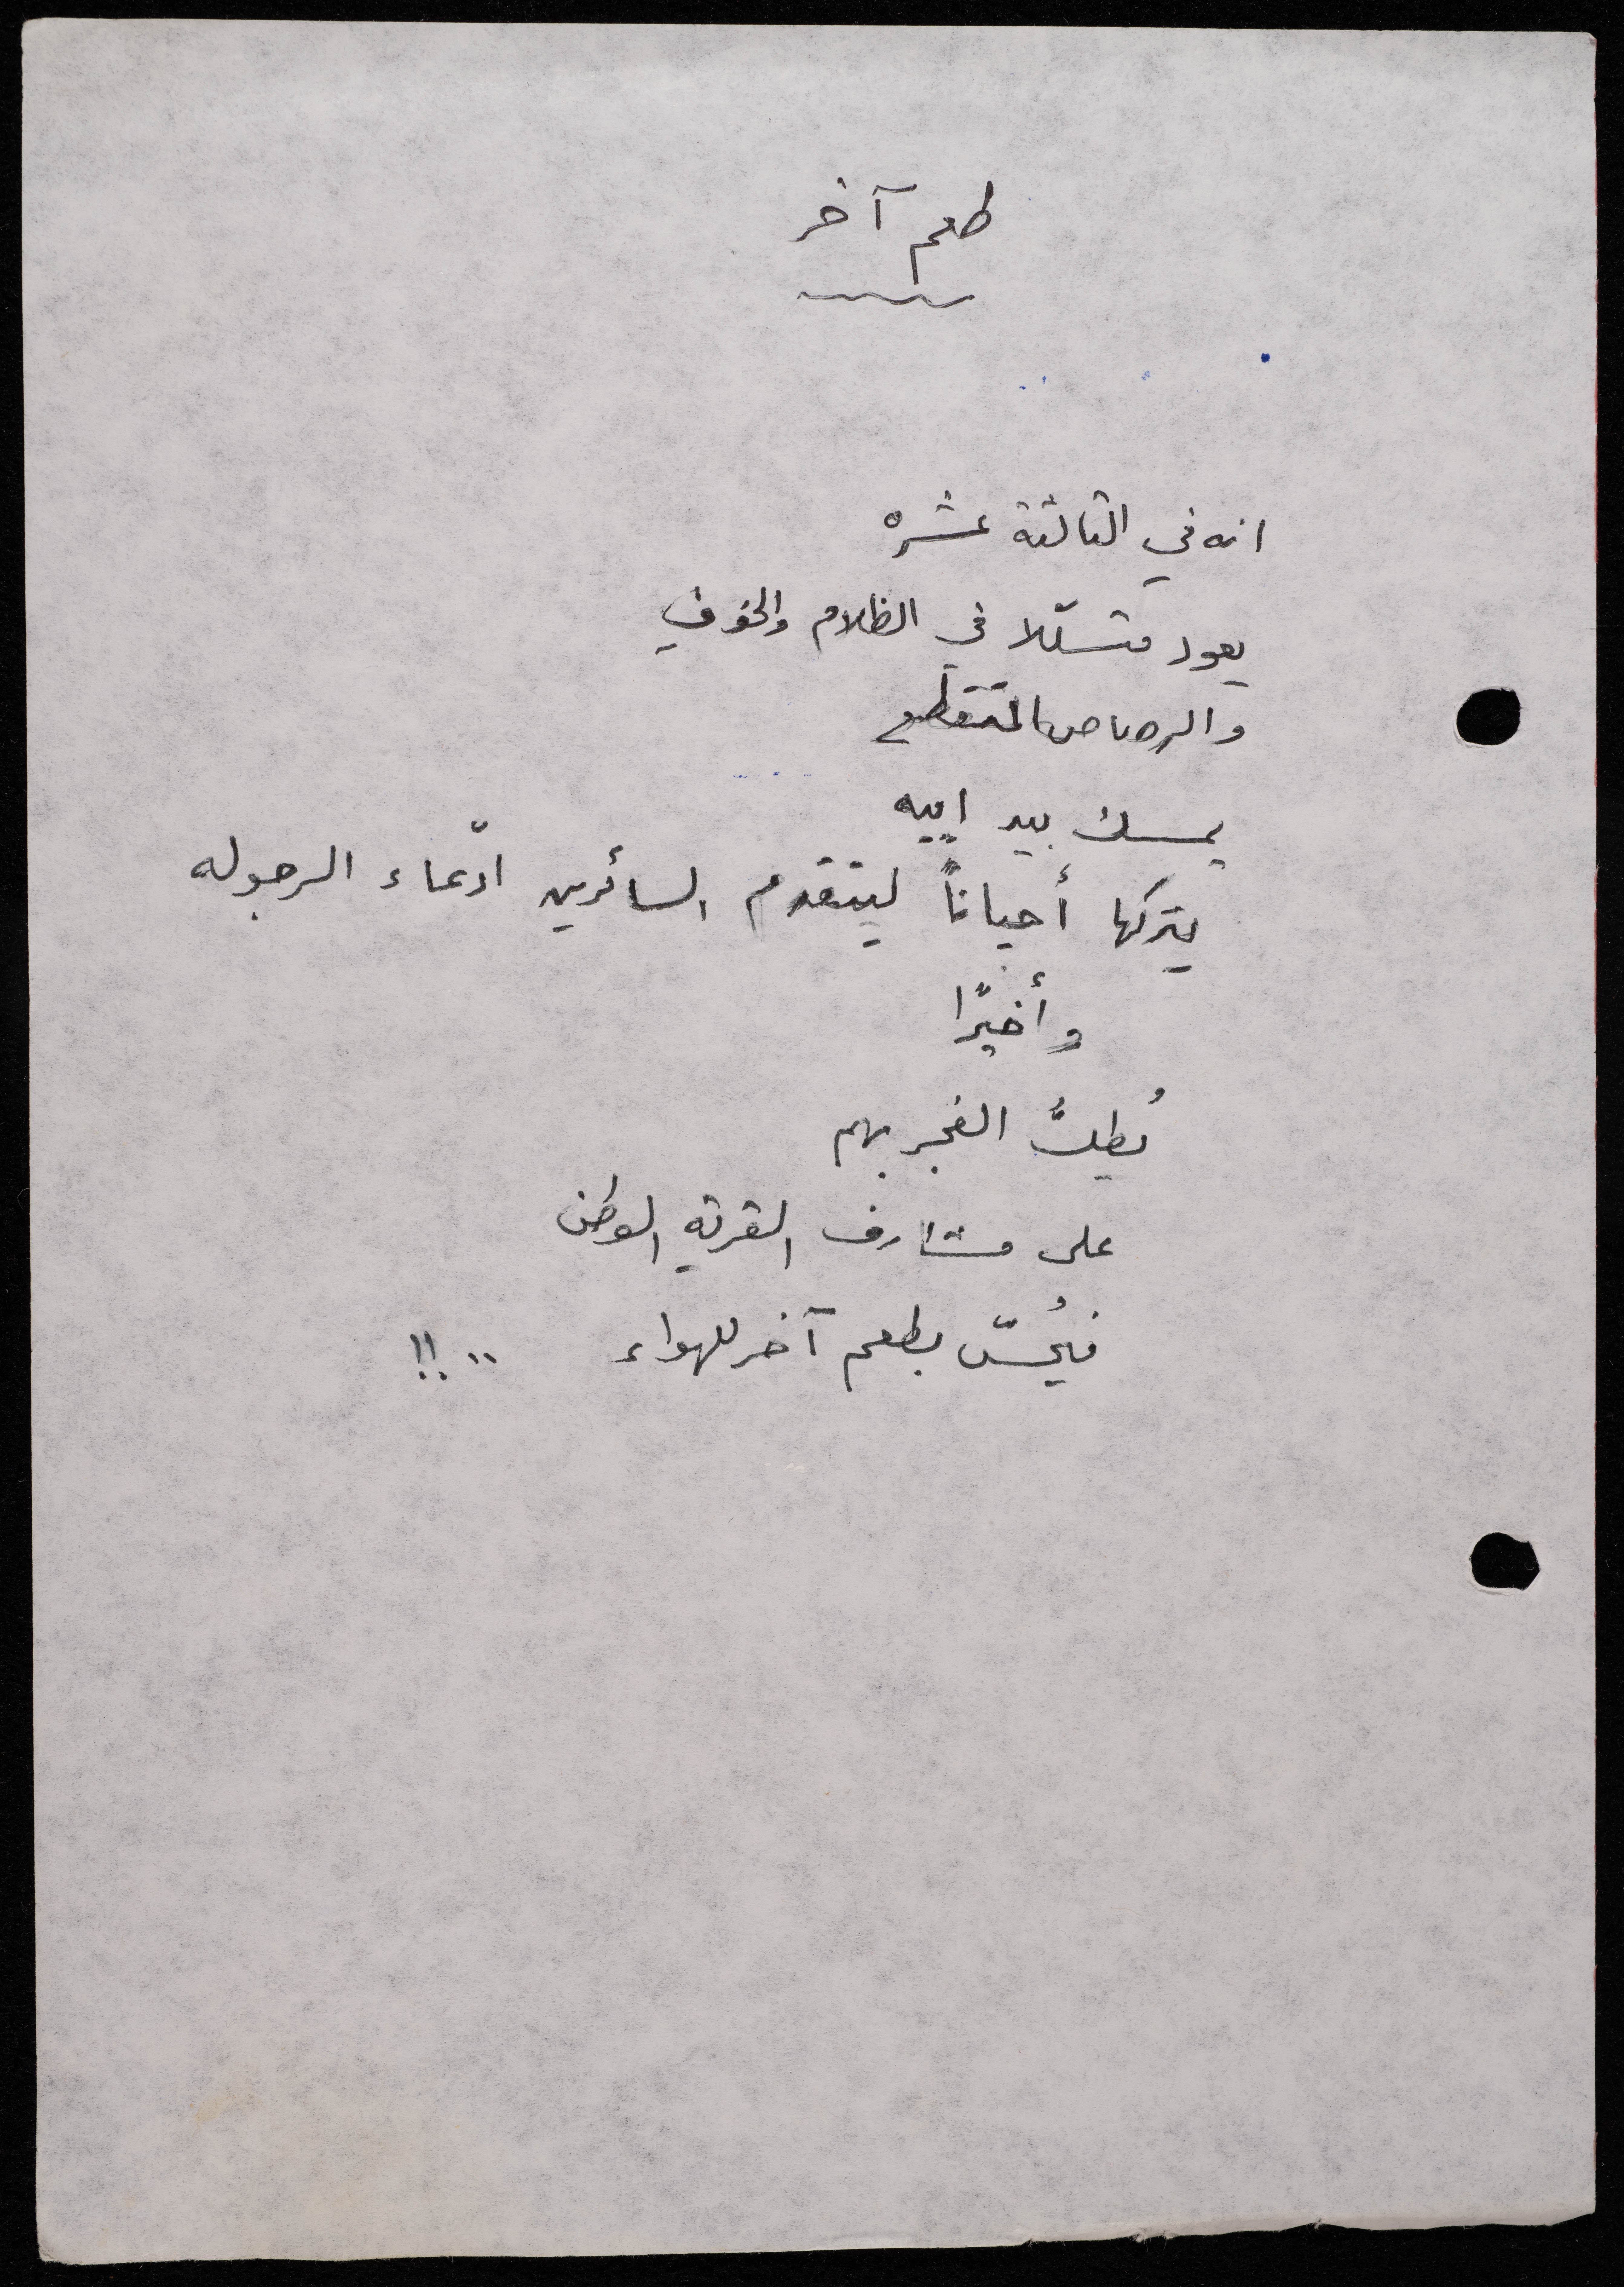 طعم آخر
انه في الثالثة عشره
يعود متسللا في الظلام والخوف
والرصاص المتقطع
يمسك بيد ابيه
يتركها أحياناً ليتقدم السائرين ادّعاء الرجوله
وأخيرًا
يُطلُّ الفجر بهم
على مشارف القريه الوطن
فيُحسّ بطعم آخر للهواء ..!!